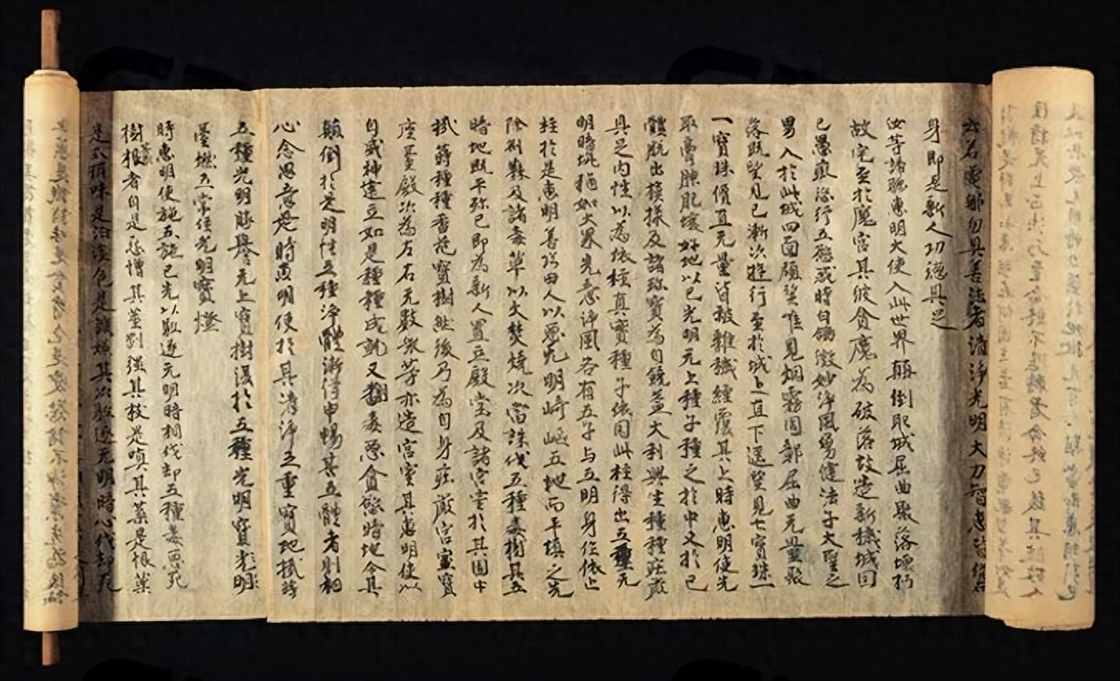 若電那勿具善法者清淨光明大力智惠皆俻在
身即是新人功德具足
汝等諦聽惠明大使入此世界顛倒耶城屈曲聚落壞朽
故宅至於魔宮其彼貪魔為破落故造新穢城因
己愚癡恣行五慾或時白鴿微妙淨風勇健法子大聖之
男入於此城四面顧望唯見烟霧周鄣屈曲无量聚
落既望見已漸次遊行至於城上直下遥望見七寶珠一
一寶珠價直无量皆被雜穢纏覆其上時惠明使先
取膏腴肥壤好地以己光明无上種子種之於中又於己
體脱出模樣及諸珍寶為自饒益大利興生種種莊嚴
具足内性以為依柱真實種子依因此柱得出五種无
明暗坑猶如大界先意淨風各有五子与五明身作依止
柱於是惠明善巧田人以惡无明崎嶇五地而平填之先
除荊棘及諸毒草以火焚燒次當誅伐五種毒樹其五
暗地既平殄已即為新人置立殿堂及諸宮室於其園中
栽蒔種種香花寶樹然後乃為自身莊嚴宮室寶
座臺殿次為左右无數衆等亦造宮室其惠明使以
自威神建立如是種種成就又翻毒惡貪慾暗地令其
顛倒於是明性五種淨體漸得申暢其五體者則相
心念思意是時惠明使於其清淨五重寶地栽蒔
五種光明勝譽无上寶樹復於五種光明寶臺
燃五常住光明寶燈
時惠明使施五施已先以驅逐无明暗相伐却五種毒惡死
樹根者自是怨憎其莖剛强其枝是嗔其葉是恨菓
是分拆味是泊淡色是譏嫌其次驅逐无明暗心伐却死